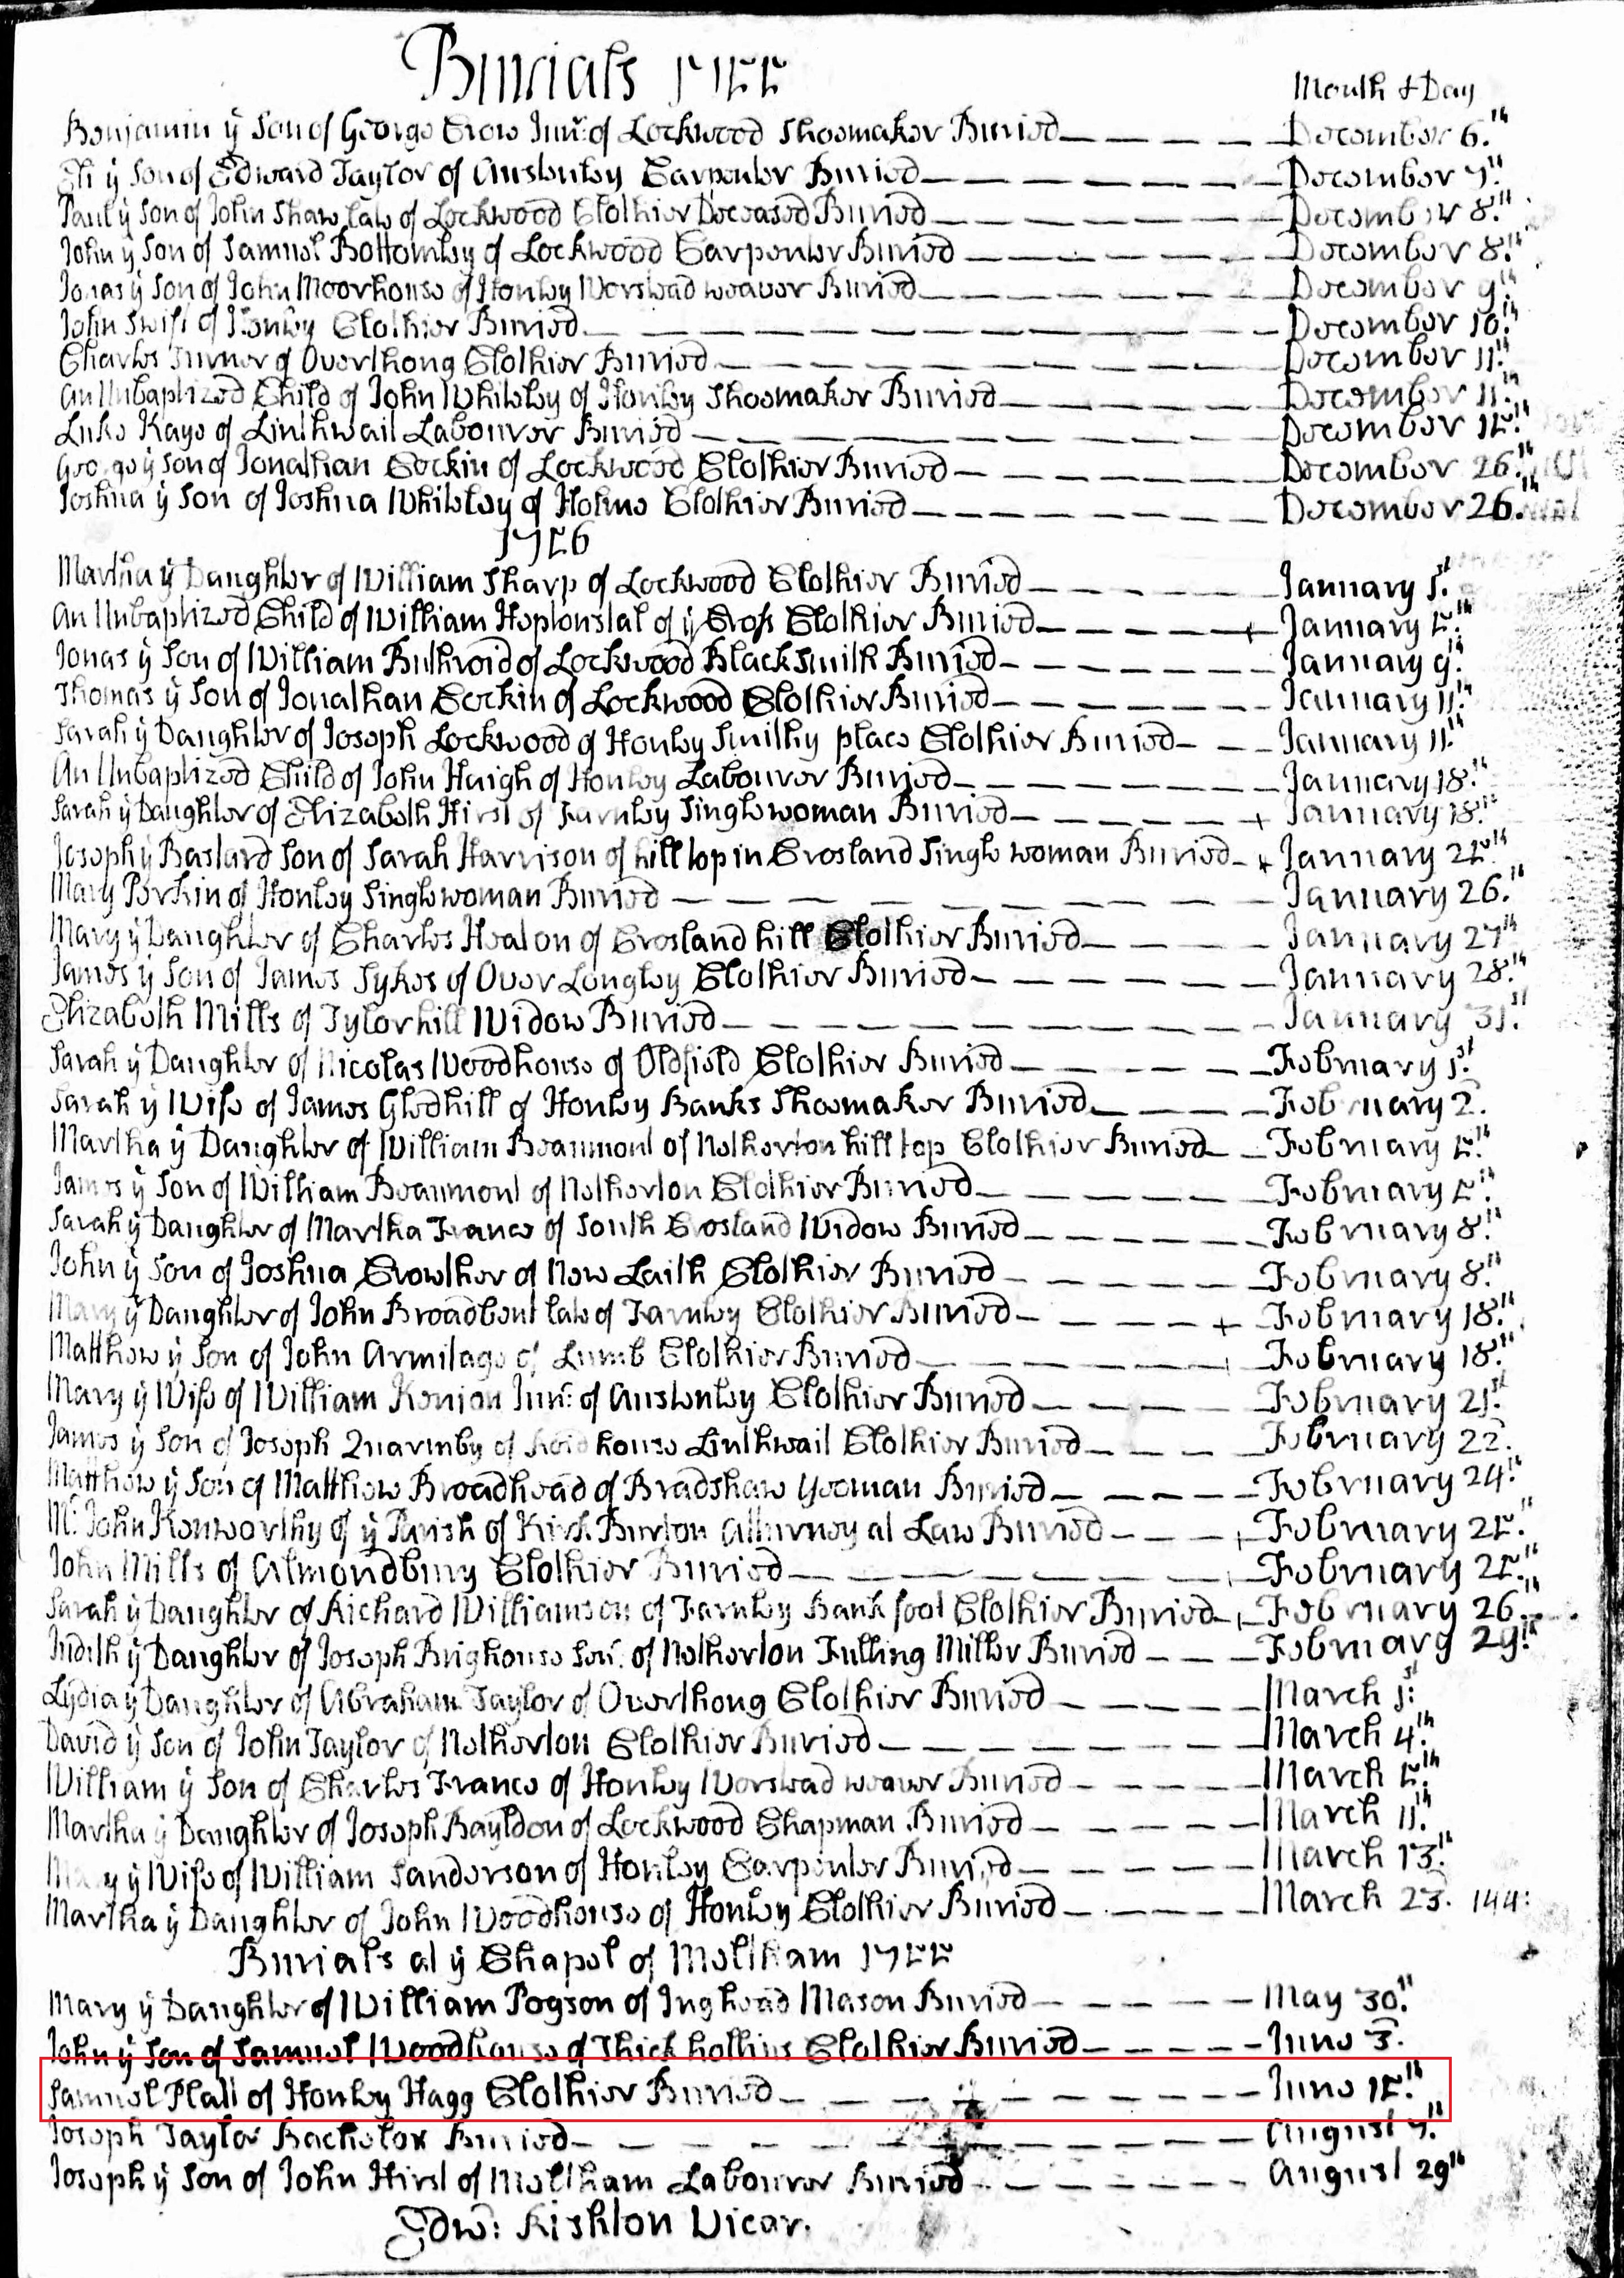 Burials 1755
Month & Day
Benjamin ÿ Son of George Crow Junr: of Lockwood Shoemaker Buried — — — — December 6.th
Eli ÿ Son of Edward Taylor of Austonley Carpenter Buried — — — — — — — December 7.th
Paul ÿ Son of John Shaw late of Lockwood Clothier Deceased Buried — — — — — — — December 8.th
John ÿ Son of Samuel Bottomley of Lockwood Carpenter Buried — — — — — — December 8.th
Jonas ÿ Son of John Moorhouse of Honley Worstead weaver Buried — — — — — — — December 9.th
John Swift of Honley Clothier Buried — — — — — — — — — — — — December 10.th
Charles Turner of Overthong Clothier Buried — — — — — — — — — — December 11.th
An Unbaptized Child of John Whiteley of Honley Shoemaker Buried — — — — — — December 11.th
Luke Kaye of Linthwait Labourer Buried — — — — — — — — — — December 15.th
George ÿ Son of Jonathan Cockin of Lockwood Clothier Buried — — — — — — — December 26.th
Joshua ÿ Son of Joshua Whiteley of Holme Clothier Buried — — — — — — — December 26.th
1756
Martha ÿ Daughter of William Sharp of Lockwood Clothier Buried — — — — — — January 1.st
An Unbaptized Child of William Heptonstal of ÿ Cross Clothier Buried — — — — + January 5.th
Jonas ÿ Son of William Buthroid of Lockwood Blacksmith Buried — — — — — — January 9.th
Thomas ÿ Son of Jonathan Cockin of Lockwood Clothier Buried — — — — — — — January 11.th
Sarah ÿ Daughter of Joseph Lockwood of Honley Smithy place Clothier Buried — — — January 11.th
An Unbaptized Child of John Haigh of Honley Labourer Buried — — — — — — — January 18.th
Sarah ÿ Daughter of Elizabeth Hirst of Farnley Singlewoman Buried — — — — — + January 18.th
Joseph ÿ Bastard Son of Sarah Harrison of hill top in Crosland Single woman Buried — + January 25.th
Mary Perkin of Honley Singlewoman Buried — — — — — — — — — — January 26.th
Mary ÿ Daughter of Charles Heaton of Crosland hill Clothier Buried — — — — January 27th
James ÿ Son of James Sykes of Over Longley Clothier Buried — — — — — — — January 28.th
Elizabeth Mills of Tylerhill Widow Buried — — — — — — — — — — — January 31.st
Sarah ÿ Daughter of Nicolas Woodhouse of Oldfield Clothier Buried — — — — — — February 1.st
Sarah ÿ Wife of James Gledhill of Honley Banks Shoemaker Buried — — — — February 2.
Martha ÿ Daughter of William Beaumont of Netherton hill top Clothier Buried — — February 5.th
James ÿ Son of William Beaumont of Netherton Clothier Buried — — — — — — February 5.th
Sarah ÿ Daughter of Martha France of South Crosland Widow Buried — — — — — — February 8.th
John ÿ Son of Joshua Crowther of New Laith Clothier Buried — — — — — — February 8.th
Mary ÿ Daughter of John Broadbent late of Farnley Clothier Buried — — — — — + February 18.th
Matthew ÿ Son of John Armitage of Lumb Clothier Buried — — — — — — — February 18.th
Mary ÿ Wife of William Kenion Junr: of Austonley Clothier Buried — — — — — February 21.st
James ÿ Son of Joseph Quarmby of house Linthwait Clothier Buried — — — — February 22.
Matthew ÿ Son of Matthew Broadhead of Bradshaw Yeoman Buried — — — — — February 24.th
Mr. John Kenworthy of ÿ Parish of Kirk Burton Atturney at Law Buried — — — + February 25.th
John Mills of Almondbury Clothier Buried — — — — — — — — + February 25.th
Sarah ÿ Daughter of Richard Williamson of Farnley Bank foot Clothier Buried — + February 26.th
Judith ÿ Daughter of Joseph Brighouse Senr. of Netherton Fulling Miller Buried — — — February 29.th
Lydia ÿ Daughter of Abraham Taylor of Overthong Clothier Buried — — — — — March 1st:
David ÿ Son of John Taylor of Netherton Clothier Buried — — — — — — — — March 4.th
William ÿ Son of Charles France of Honley Worstead weaver Buried — — — — — March 5.th
Martha ÿ Daughter of Joseph Bayldon of Lockwood Chapman Buried — — — — — March 11.th
Mary ÿ Wife of William Sanderson of Honley Carpenter Buried — — — — — — March 13.th
Martha ÿ Daughter of John Woodhouse of Honley Clothier Buried — — — — — March 23. 144:
Burials at ÿ Chapel of Meltham 1755
Mary ÿ Daughter of William Pogson of Inghead Mason Buried — — — — — May 30.th
John ÿ Son of Samuel Woodhouse of Thick hollins Clothier Buried — — — — — June 3.
Samuel Platt of Honley Hagg Clothier Buried — — — — — — — — — June 15.th
Joseph Taylor Bachelor Buried — — — — — — — — — — — — August 7.th
Joseph ÿ Son of John Hirst of Meltham Labourer Buried — — — — — — — August 29th
Edw: Rishton Vicar.